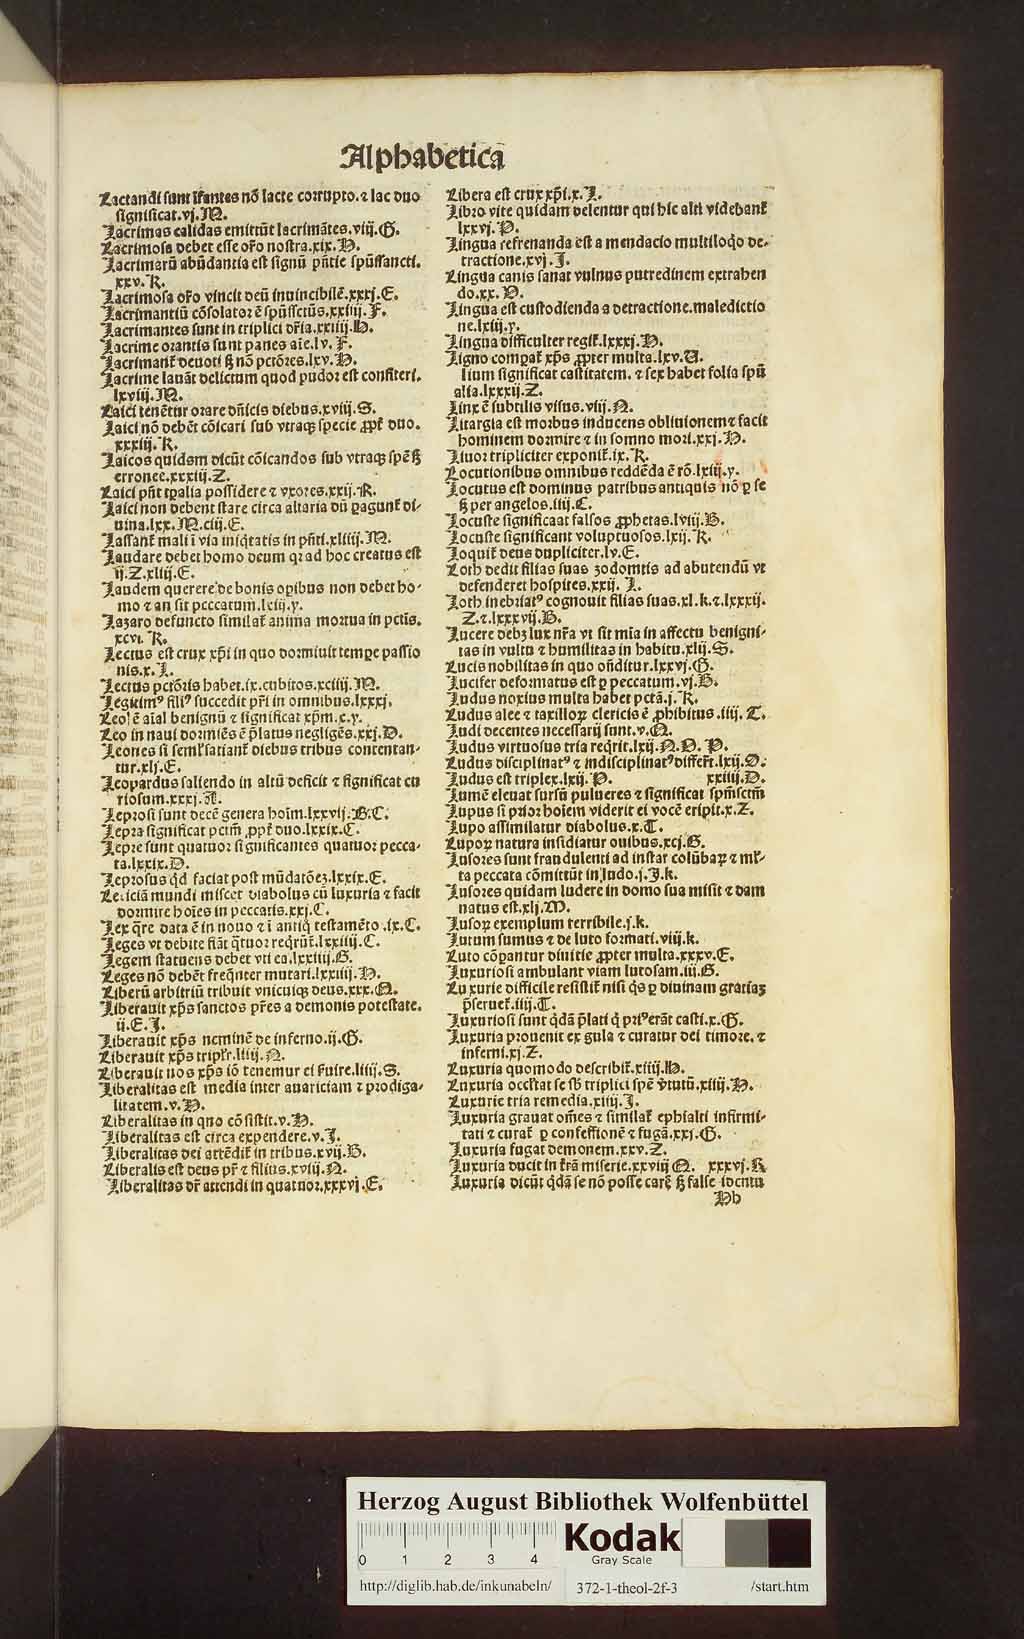 Alphabetica
Lactandi sunt īfantes nō lacte corrupto.⁊ lac duo
significat.vj.M.
Lacrimas calidas emittūt lacrimātes.viij.G.
Lacrimosa debet esse or̄o nostra.xix.H.
Lacrimarū abūdantia est signū pn̄tie spūssancti.
xxv.K.
Lacrimosa or̄o vincit deū inuincibilē.xxxj.E.
Lacrimantiū cōsolator ē spūssctūs.xxiiij.F.
Lacrimantes sunt in triplici dr̄ia.xxiiij.H.
Lacrime orantis sunt panes aīe.lv.F.
Lacrimant̄ deuoti ꝫ nō pctōres.lxv.H.
Lacrime lauāt delictum quod pudor est confiteri.
lxviij.M.
Laici tenētur orare dn̄icis diebus.xviij.S.
Laici nō debēt cōicari sub vtraqꝫ specie ꝓpt̄ duo.
xxxiij.K.
Laicos quidam dicūt cōicandos sub vtraqꝫ spē ꝫ
erronee.xxxiij.Z.
Laici pn̄t tp̄alia possidere ⁊ vxores.xxij.R.
Laici non debent stare circa altaria dū ꝑagunt̄ di-
uina.lxx.M.ciij.E.
Lassant̄ mali ī via iniq̄tatis in pn̄ti.xliiij.M.
Laudare debet homo deum qꝛ ad hoc creatus est
ij.Z.xliij.E.
Laudem querere de bonis operibus non debet ho-
mo ⁊ an sit peccatum.lxiij.y.
Lazaro defuncto similat̄ anima mortua in pctīs.
xcvi.K.
Lectus est crux xp̄i in quo dormiuit tempꝑe passio
nis.x.I.
Lectus pctōris habet.ix.cubitos.xciiij.M.
Legittimꝰ filiꝰ succedit pr̄i in omnibus.lxxxj.
Leo ē aīal benignū ⁊ significat xp̄m.x.y.
Leo in naui dormiēs ē p̄latus negligēs.xxj.D.
Leones si semel satiant̄ diebus tribus contentan-
tur.xlj.E.
Leopardus saliendo in altū deficit ⁊ significat cu
riosum.xxxj.A.
Leprosi sunt decē genera hoīm.lxxvij.B.C.
Lepra significat pctm̄ ꝓpt̄ duo.lxxix.C.
Lepre sunt quatuor significantes quatuor pecca-
ta.lxxix.D.
Leprosus qd̄ faciat post mūdatōeꝫ.lxxix.E.
Leticiā mundi miscet diabolus cū luxuria ⁊ facit
dormire hoīes in peccatis.xxj.C.
Lex q̄re data ē in nouo ⁊ ī antiq̄ testamēto.ix.C.
Leges vt debite fiāt q̄tuor reqrūt̄.lxxiiij.C.
Legem statuens debet vti ea.lxxiiij.G.
Leges nō debēt freqn̄ter mutari.lxxiiij.H.
Liberū arbitriū tribuit vnicuiqꝫ deus.xxx.N.
Liberauit xp̄s sanctos pr̄es a demonis potestate.
ij.E.I.
Liberauit xp̄s neminē de inferno.ij.G.
Liberauit xp̄s tripl̄r.liiij.N.
Liberauit nos xp̄s iō tenemur ei ẜuire.liiij.S.
Liberalitas est media inter auariciam ⁊ prodiga-
litatem.v.H.
Liberalitas in quo cōsistit.v.H.
Liberalitas est circa expendere.v.I.
Liberalitas dei attēdit̄ in tribus.xvij.B.
Liberalis est deus pr̄ ⁊ filius.xviij.N.
Liberalitas dr̄ attendi in quatuor.xxxvj.E.
Libera est crux xp̄i.x.I.
Libro vite quidam delentur qui hic alti videbant̄
lxxvj.P.
Lingua refrenanda est a mendacio multiloq̄o de-
tractione.xvj.I.
Lingua canis sanat vulnus putredinem extrahen
do.xx.P.
Lingua est custodienda a detractione.maledictio
ne.lxiij.y.
Lingua difficulter regit̄.lxxxj.H.
Ligno compat̄ xp̄s ꝓpter multa.lxv.U.
lium significat castitatem.⁊ sex habet folia spū
alia.lxxxij.Z.
Linx ē subtilis visus.viij.N.
Litargia est morbus inducens obliuionem ⁊ facit
hominem dormire ⁊ in somno mori.xxj.H.
Liuor tripliciter exponit̄.ix.K.
Locutionibus omnibus reddēda ē rō.lxiij.y.
Locutus est dominus patribus antiquis nō ꝑ se
ꝫ per angelos.iiij.C.
Locuste significāt falsos ꝓphetas.lviij.B.
Locuste significant voluptuosos.lxij.K.
Loquit̄ deus dupliciter.lv.E.
Loth dedit filias suas zodomitis ad abutendū vt
defenderet hospites.xxij. I.
Loth inebriatꝰ cognouit filias suas.xl.k.⁊.lxxxij.
Z.⁊.lxxxvij.B.
Lucere debꝫ lux nr̄a vt sit mīa in affectu benigni-
tas in vultu ⁊ humilitas in habitu.xlij.S.
Lucis nobilitas in quo on̄ditur.lxxvj.G.
Lucifer deformatus est ꝑ peccatum.vj.B.
Ludus noxius multa habet pctā.j.K.
Ludus alee ⁊ taxilloꝝ clericis ē ꝓhibitus.iiij.T.
Ludi decentes necessarij sunt.v.N.
Ludus virtuosus tria reqrit.lxij.N.O.P.
Ludus disciplinatꝰ ⁊ indisciplinatꝰ differt̄.lxij.O.
Ludus est triplex.lxij.P. xxiiij.D.
Lumē eleuat sursū pulueres ⁊ significat spm̄sctm̄
Lupus si prior hoīem viderit ei vocē eripit.x.Z.
Lupo assimilatur diabolus.x.T.
Lupoꝝ natura insidiatur ouibus.xcj.G.
Lusores sunt fraudulenti ad instar colūbaꝝ ⁊ ml̄-
ta peccata cōmittūt in ludo.j.I.k.
Lusores quidam ludere in domo sua misit ⁊ dam
natus est.xlj.M.
Lusoꝝ exemplum terribile.j.k.
Lutum sumus ⁊ de luto formati.viij.k.
Luto cōꝑantur diuitie ꝓpter multa.xxxv.E.
Luxuriosi ambulant viam lutosam.iij.G.
Luxurie difficile resistit̄ nisi q̄s ꝑ diuinam gratiaꝫ
p̄seruet̄.iiij.T.
Luxuriosi sunt qdā p̄lati q̄ priꝰ erāt casti.x.G.
Luxuria prouenit ex gula ⁊ curatur dei timore.⁊
inferni.xj.Z.
Luxuria quomodo describit̄.xiiij.H.
Luxuria occl̄tat se sb̄ triplici spē v̄tutū.xiiij.H.
Luxurie tria remedia.xiiij.I.
Luxuria grauat om̄es ⁊ similat̄ ephialti infirmi-
tati ⁊ curat̄ ꝑ confessionē ⁊ fugā.xxj.G.
Luxuria fugat demonem.xxv.Z.
Luxuria ducit in t̄rā miserie.xxviij N. xxxvj.K
Luxuria dicūt qdā se nō posse carē ꝫ false
Hb
Herzog August Bibliothek Wolfenbüttel
0 1 2 3 4
Kodak
Gray Scale
http://diglib.hab.de/inkunabeln/ 372-1-theol-2f-3 /start.htm